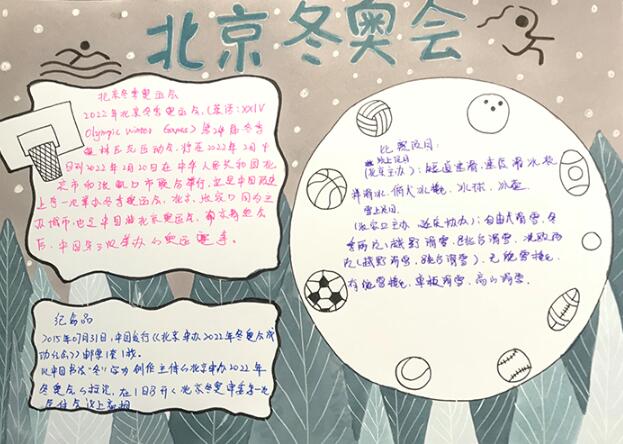 北京冬奥会
北京冬季奥运会
2022年北京冬季奥运会,(英语:XXIV
Olympic Winter Games)第24届冬季
奥林匹克运动会,将在2022年2月4
日到2022年2月20在中华人民共和国北
京市和张家口市联合举行,这是中国历史
上第一次举办冬季奥运会,北京、张家口同为主
办城市,也是中国继北京奥运会,南京青奥会
后,中国第三次举办的奥运赛事。
纪念品
2015年07月31日,中国发行《北京申办2022年冬奥会成
功纪念》邮票1套1枚。
以中国书法“冬”字为创作主体的北京申办2022年
冬奥会的标志,在1日8
比赛项目:
冰上项目
(北京主办):短道速滑、速度滑冰、花
样滑冰、俯式冰橇、冰球、冰壶
雪上项目
(张家口主办、延庆协办):自由式滑雪、冬
季两项(越野滑雪、
(越野滑雪、
有舵雪橇、单板滑雪、高山滑雪。